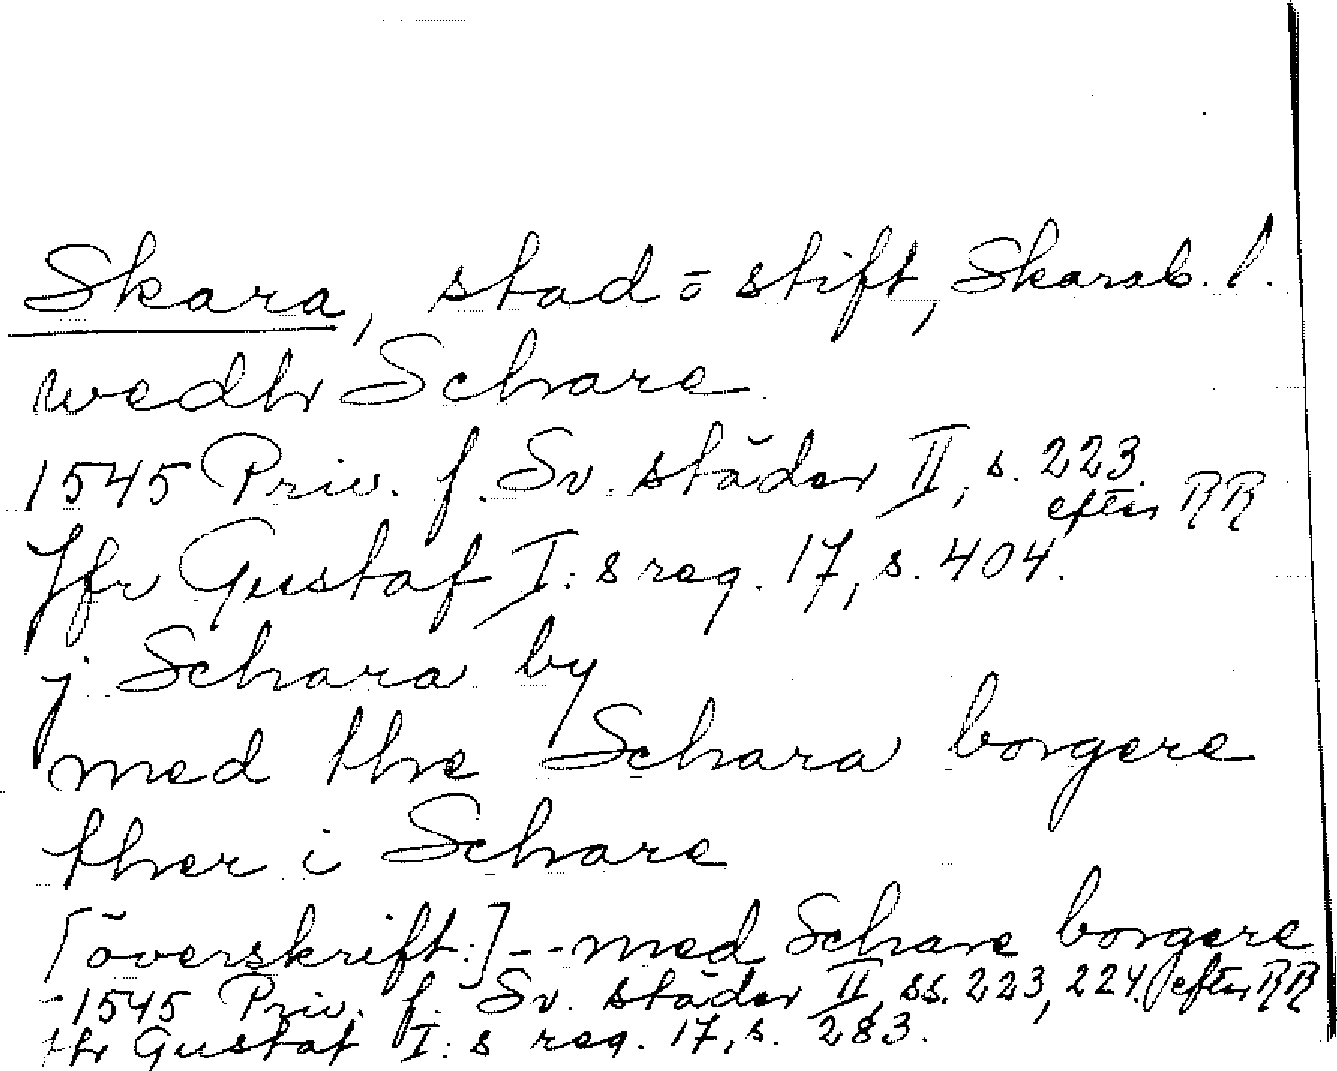 Skara, stad ō stift, Skarab. l.
wedhr Schare
1545 Priv. f. Sv. städer II, s. 223
efter RR
Jfr Gustaf I:s reg. 17, s. 404.
j Schara by
med the Schara borgere
ther i Schare
[överskrift:] -- med Schare borgere
- 1545 Priv. f. Sv. städer II, ss. 223, 224 efter RR
Jfr Gustaf I:s reg. 17, s. 283.